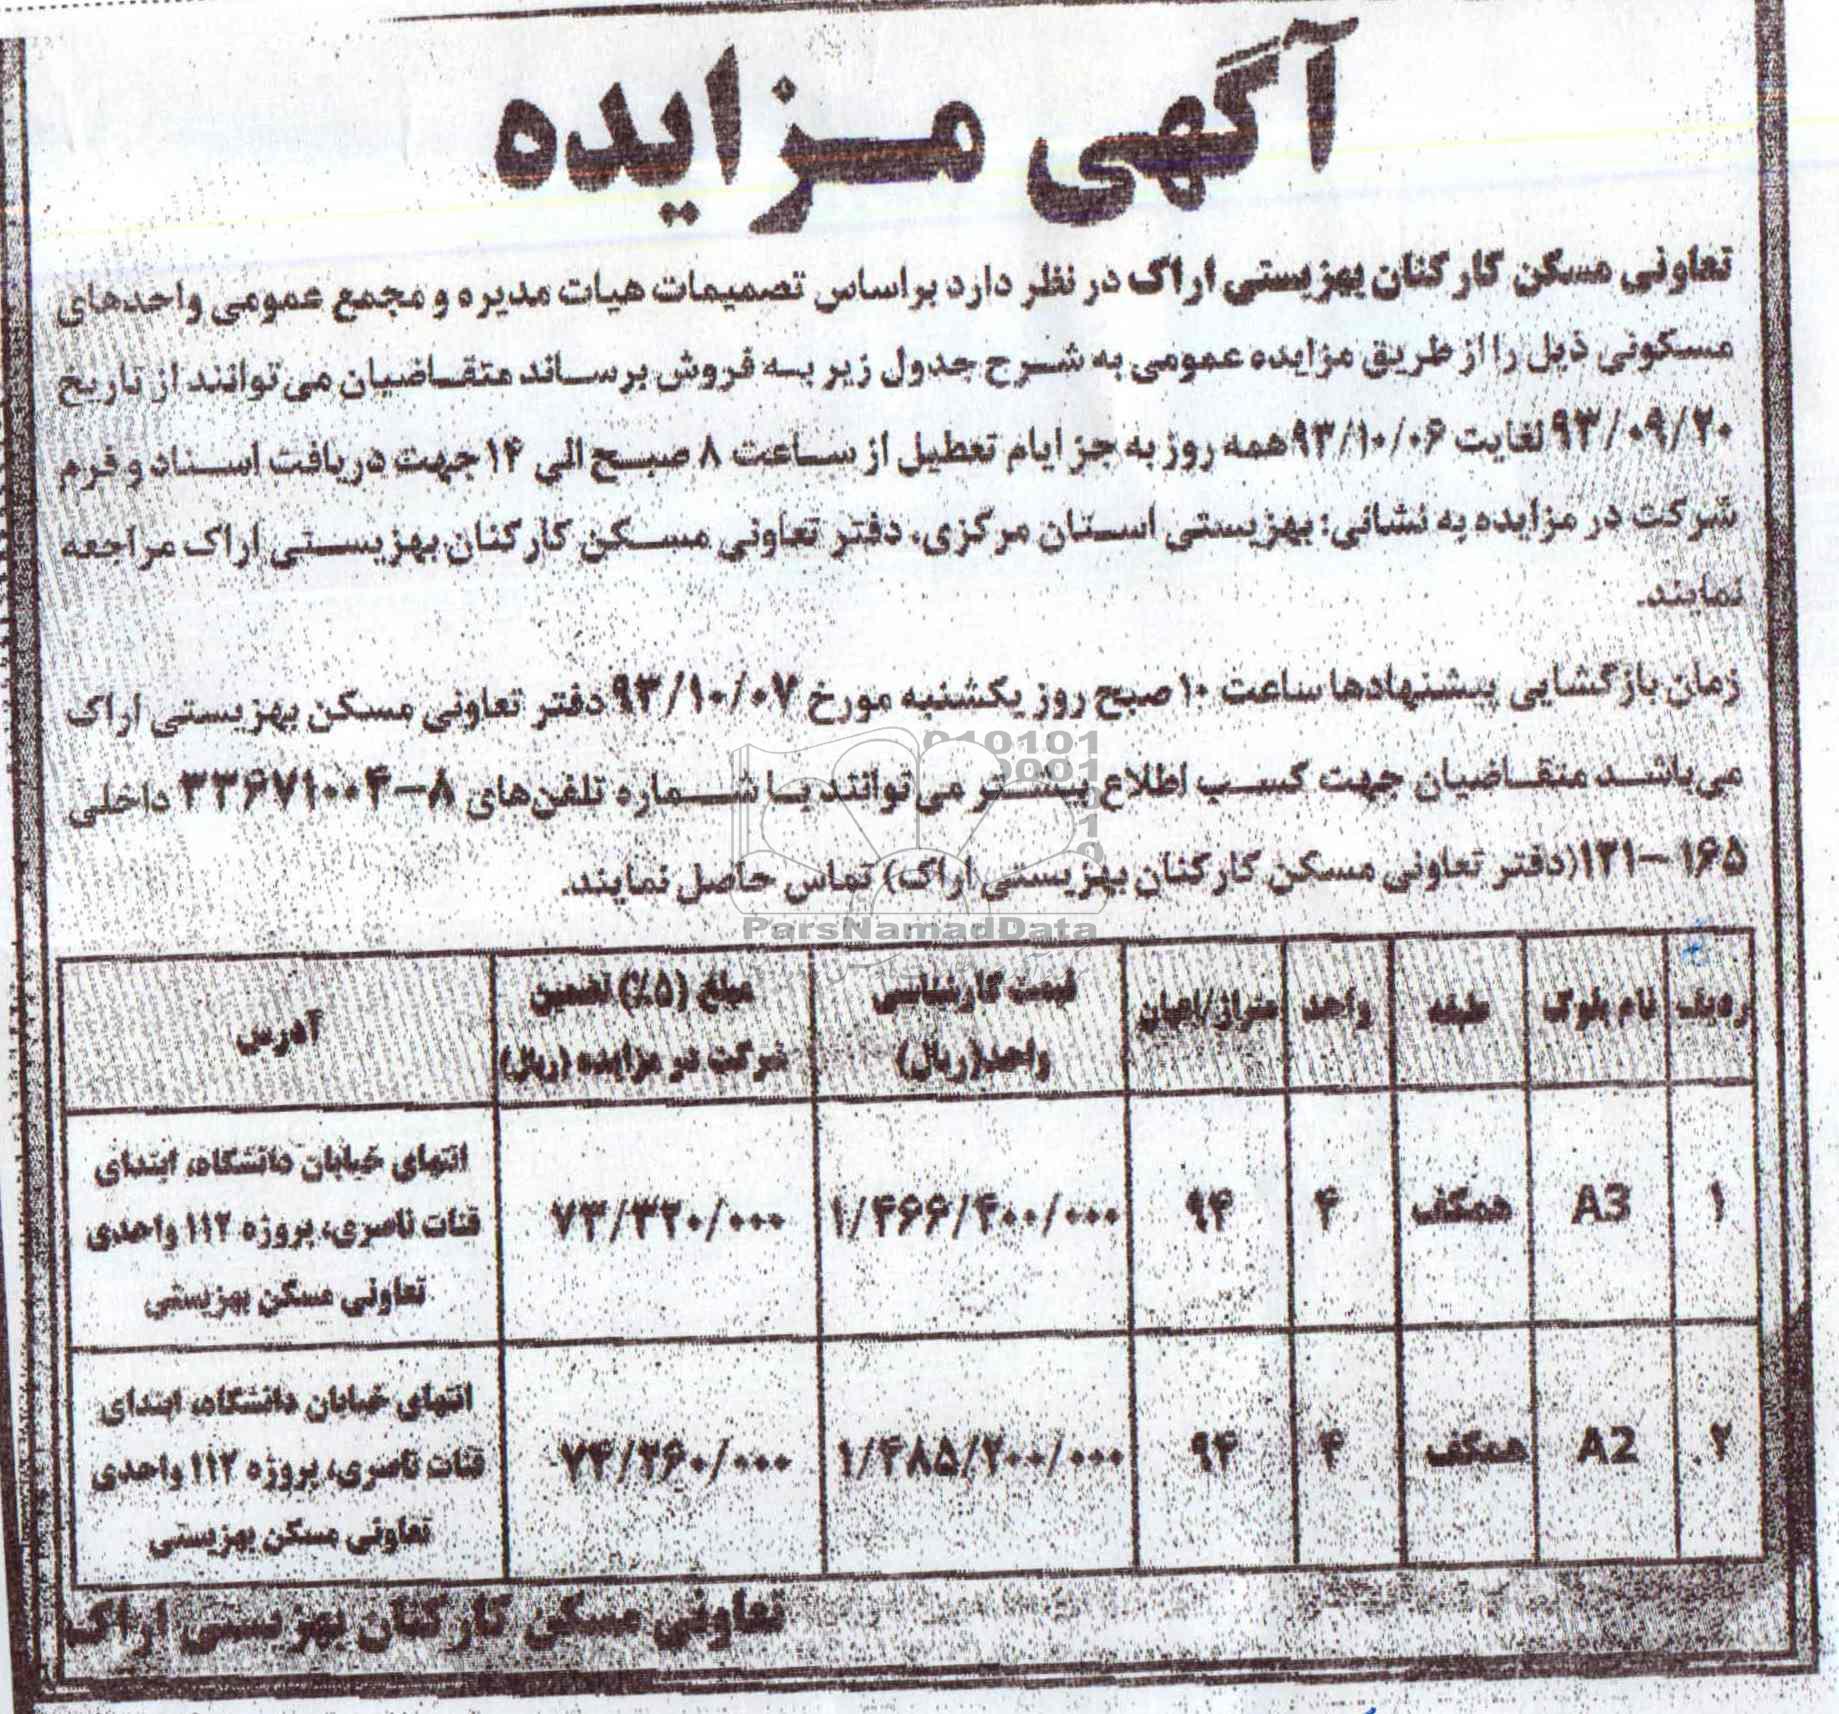 آگهی مزایده
تعاونی مسکن کارکنان بهزیستی اراک در نظر دارد براساس تصمیمات هیات مدیره و مجمع عمومی واحدهای
مسکونی ذیل را از طریق مزایده عمومی به شرح جدول زیر به فروش برساند متقاضیان می‌توانند از تاریخ
۹۳/۰۹/۲۰ لغایت ۹۳/۱۰/۰۶ همه روز به جز ایام تعطیل از ساعت ۸ صبح الی ۱۴ جهت دریافت اسناد و فرم
شرکت در مزایده به نشانی: بهزیستی استان مرکزی، دفتر تعاونی مسکن کارکنان بهزیستی اراک مراجعه
نمایند.
زمان بازگشایی پیشنهادها ساعت ۱۰ صبح روز یکشنبه مورخ ۹۳/۱۰/۰۷ دفتر تعاونی مسکن بهزیستی اراک
می‌باشد متقاضیان جهت کسب اطلاع بیشتر می‌توانند با شماره تلفن‌های ۸-۳۳۶۷۱۰۰۴ داخلی
۱۶۵ -۱۲۱(دفتر تعاونی مسکن کارکنان بهزیستی اراک) تماس حاصل نمایند.
ParsNamadData
ردیف نام بلوک طبقه واحد متراژ/اعیان قیمت کارشناسی واحد(ریال) مبلغ (۵٪) تضمین شرکت در مزایده (ریال) آدرس
۱ A3 همکف ۴ ۹۴ ۱/۴۶۶/۴۰۰/۰۰۰ ۷۳/۳۲۰/۰۰۰ انتهای خیابان دانشگاه، ابتدای
قنات ناصری، پروزه ۱۱۲ واحدی
تعاونی مسکن بهزیستی
۲ A2 همکف ۴ ۹۴ ۱/۴۸۵/۲۰۰/۰۰۰ ۷۴/۲۶۰/۰۰۰ انتهای خیابان دانشگاه، ابتدای
قنات ناصری، پروزه ۱۱۲ واحدی
تعاونی مسکن بهزیستی
تعاونی مسکن کارکنان بهزیستی اراک